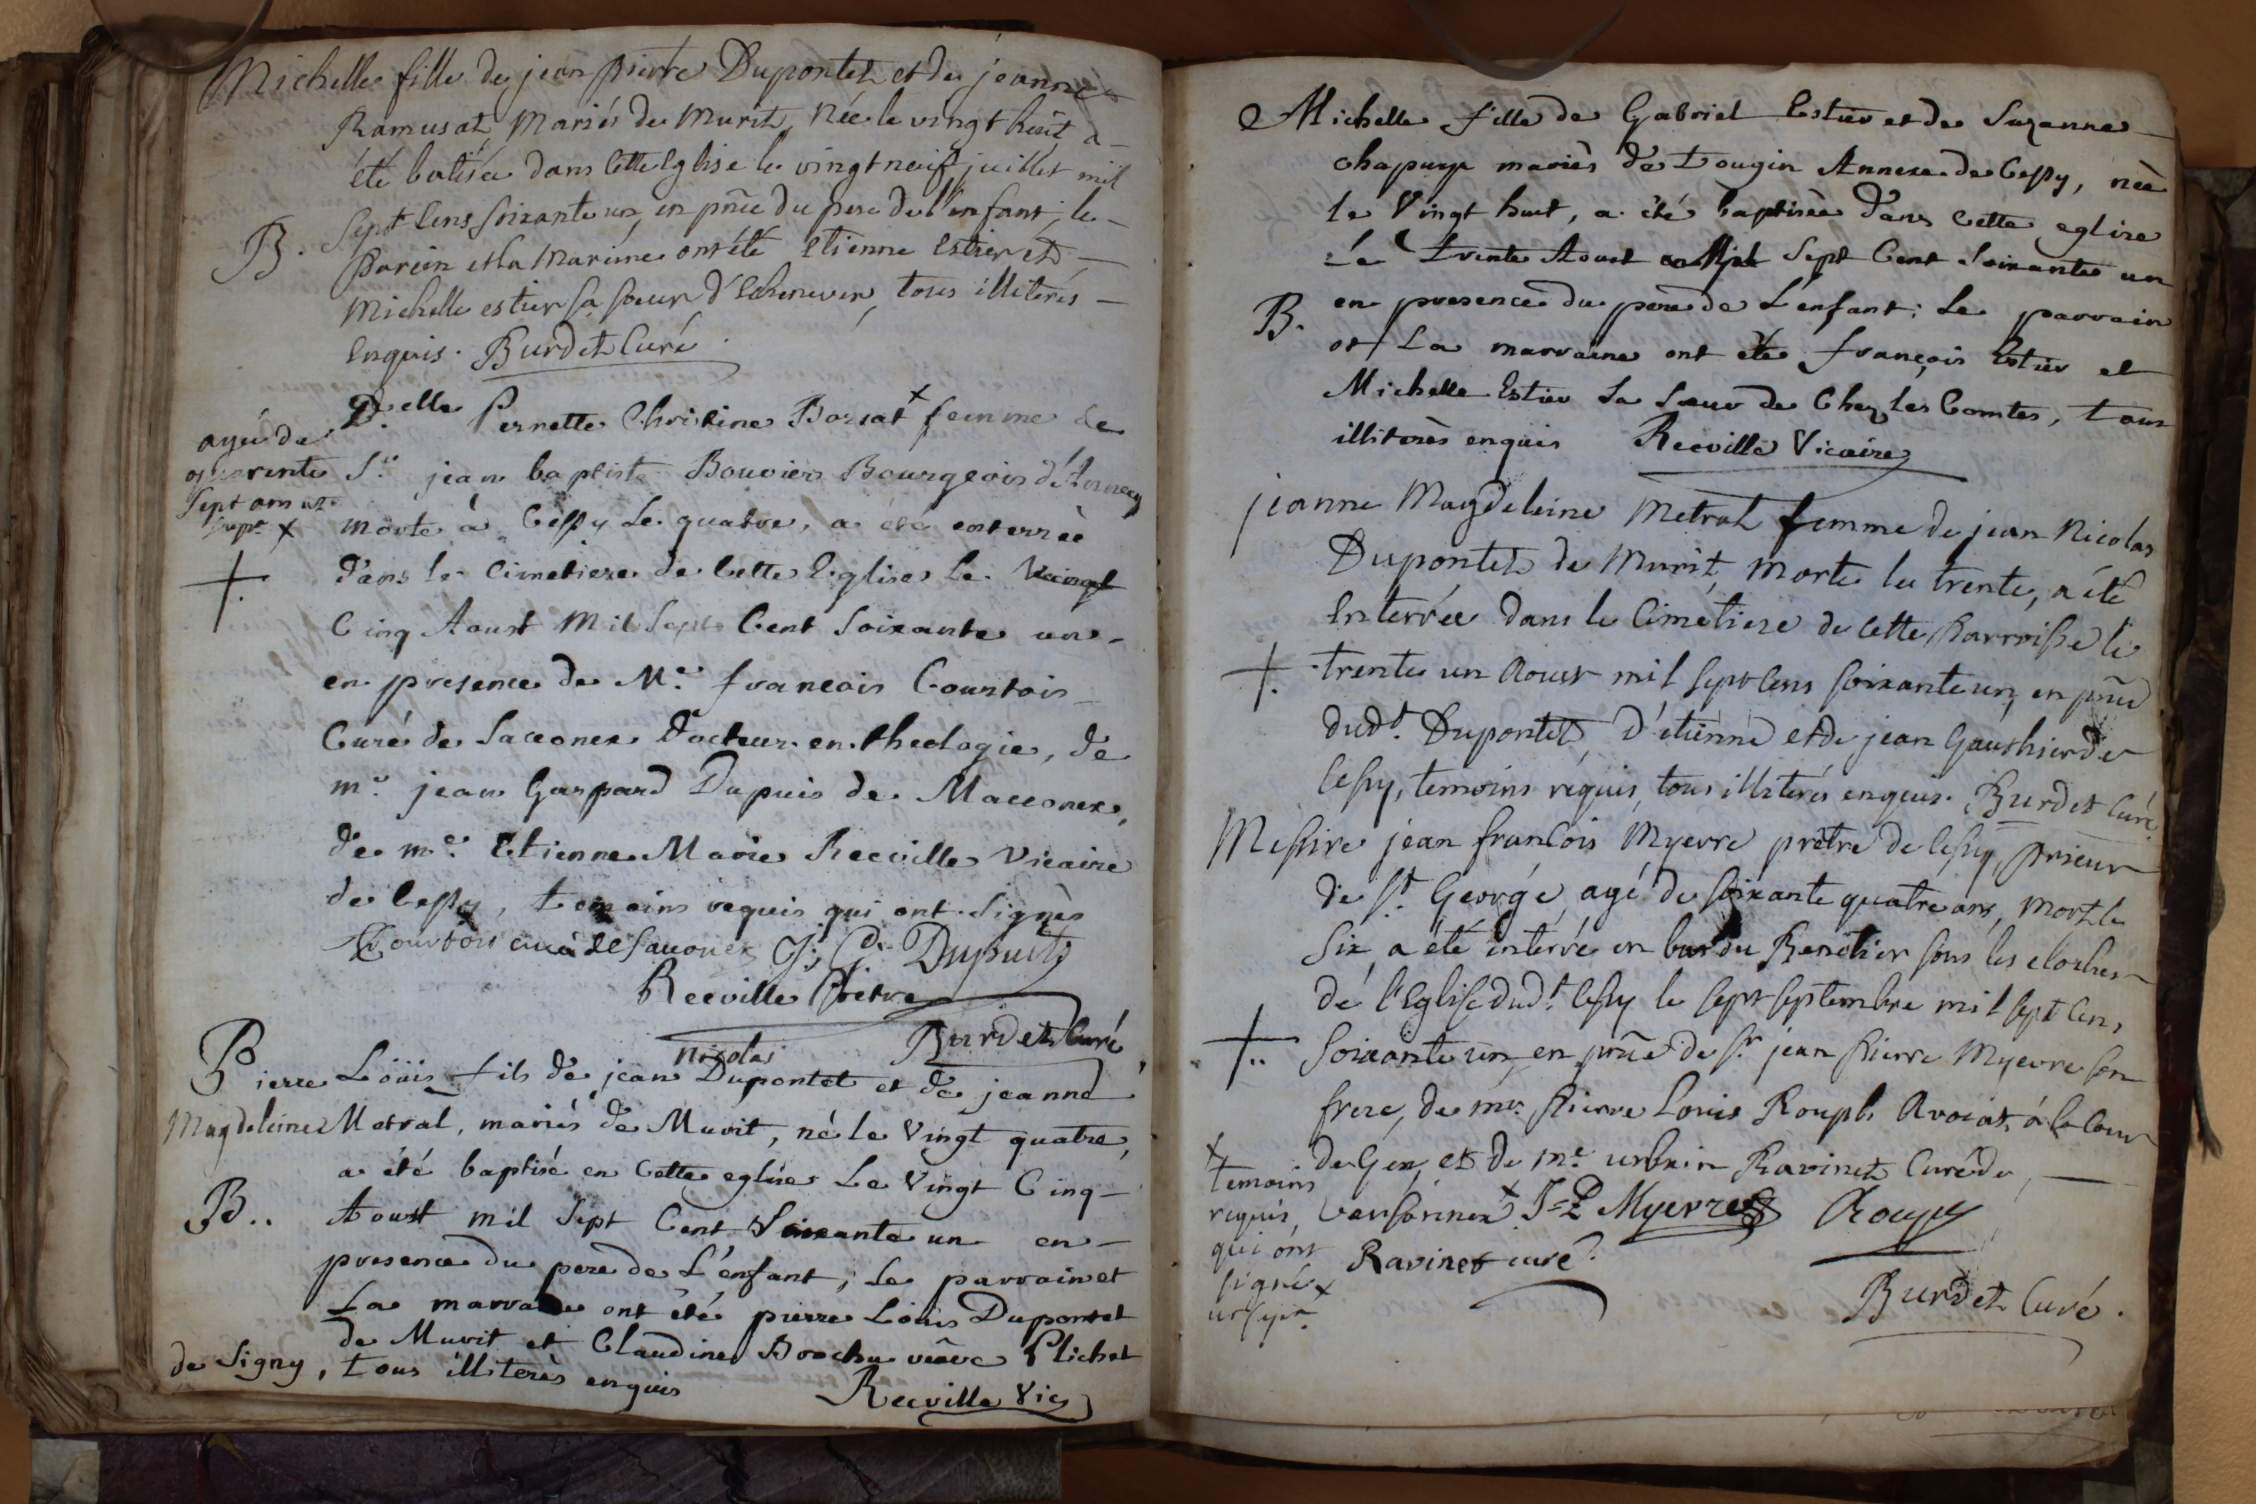 Michelle fille de jean pierre Dupontet et de jeanne
Ramusat Mariés de Murit, Née le vingt huit a
été batisée dans Cette Eglise le vingt neuf juillet mil
Sept Cens soixante un, en pñce du pere de l'enfant; le
B. Parein et la Mareine ont été Etienne Estier et
Michelle estier sa soeur d'Echenevex, tous illiterés
Enquis. Burdet Curé
D.elle Pernette Christine Borsat x femme de
agée de
quarente
Sept ans ou
x
Sr. jean baptiste Bouvier Bourgeois d'Annecy
morte à Cessy Le quatre, a été enterrée
dans le Cimetiere de Cette Eglise Le Vingt
Cinq Aoust Mil Sept Cent Soixante un
en presence de Me. francois Courtois
Curé de Sacconex Docteur en theologie, de
me. jean Gaspard Dupuis de Macconex,
de me. Etienne Marie Recville Vicaire
de Cessy, temoins requis qui ont Signès
Courtois curé de Sauonex J: G. Dupuits
Recville Prêtre
Burdet Curé
nicolas
Pierre Loüis fils de jean Dupontet et de jeanne
Magdeleine Metral, mariés de Murit, né le Vingt quatre,
a été baptisé en Cette eglise Le Vingt Cinq
B.. Aoust mil Sept Cent Soixante un en
presence du pere de L'enfant; Le parrain et
La marraine ont été pierre Loüis Dupontet
de Murit et Claudine Brochu veûve Plichet
de Signy, tous illiterès enquis
Recville Vic
Michelle fille de Gabriel Estier et de Suzanne
chapuy mariès de Tougin Annexe de Cessy, née
le Vingt huit, a été baptisée dans Cette eglise
Le trente Aoust Mil Sept Cent Soixante un
B. en presence du pere de L'enfant; Le parrain
et La marraine ont été françois Estier et
Michelle Estier Sa Soeur de Chez Les Comtes, tous
illiterès enquis Recville Vicaire
jeanne Magdeleine Metral femme de jean Nicolas
Dupontet de Murit, Morte le trente, a été
Enterrée dans le Cimétiere de Cette Parroisse le
trente un Aoust mil sept Cens soixante un, en pñce
dudt. Dupontet, d'etienne et de jean Gauthier de
Cessy, temoins réquis, tous illiterés enquis. Burdet Curé
Messire jean francois Myevre prêtre de Cessy, prieur
de St. George agé de soixante quatre ans, Mort le
Six, a été enterré en bas du Benetier sous les cloches
de l'Eglise dudt. Cessy le sept septembre mil sept Cens
soixante un, en pñce de Sr. jean pierre Myevre son
frere, de me. pierre Louis Rouph Avocat à la Cour
de Gex, et de me. urbain Ravinet Curé de
Versonnex x J=P Myevre Rouph
x
temoins
requis,
qui ont
signé x
Ravinet curé
Burdet Curé.